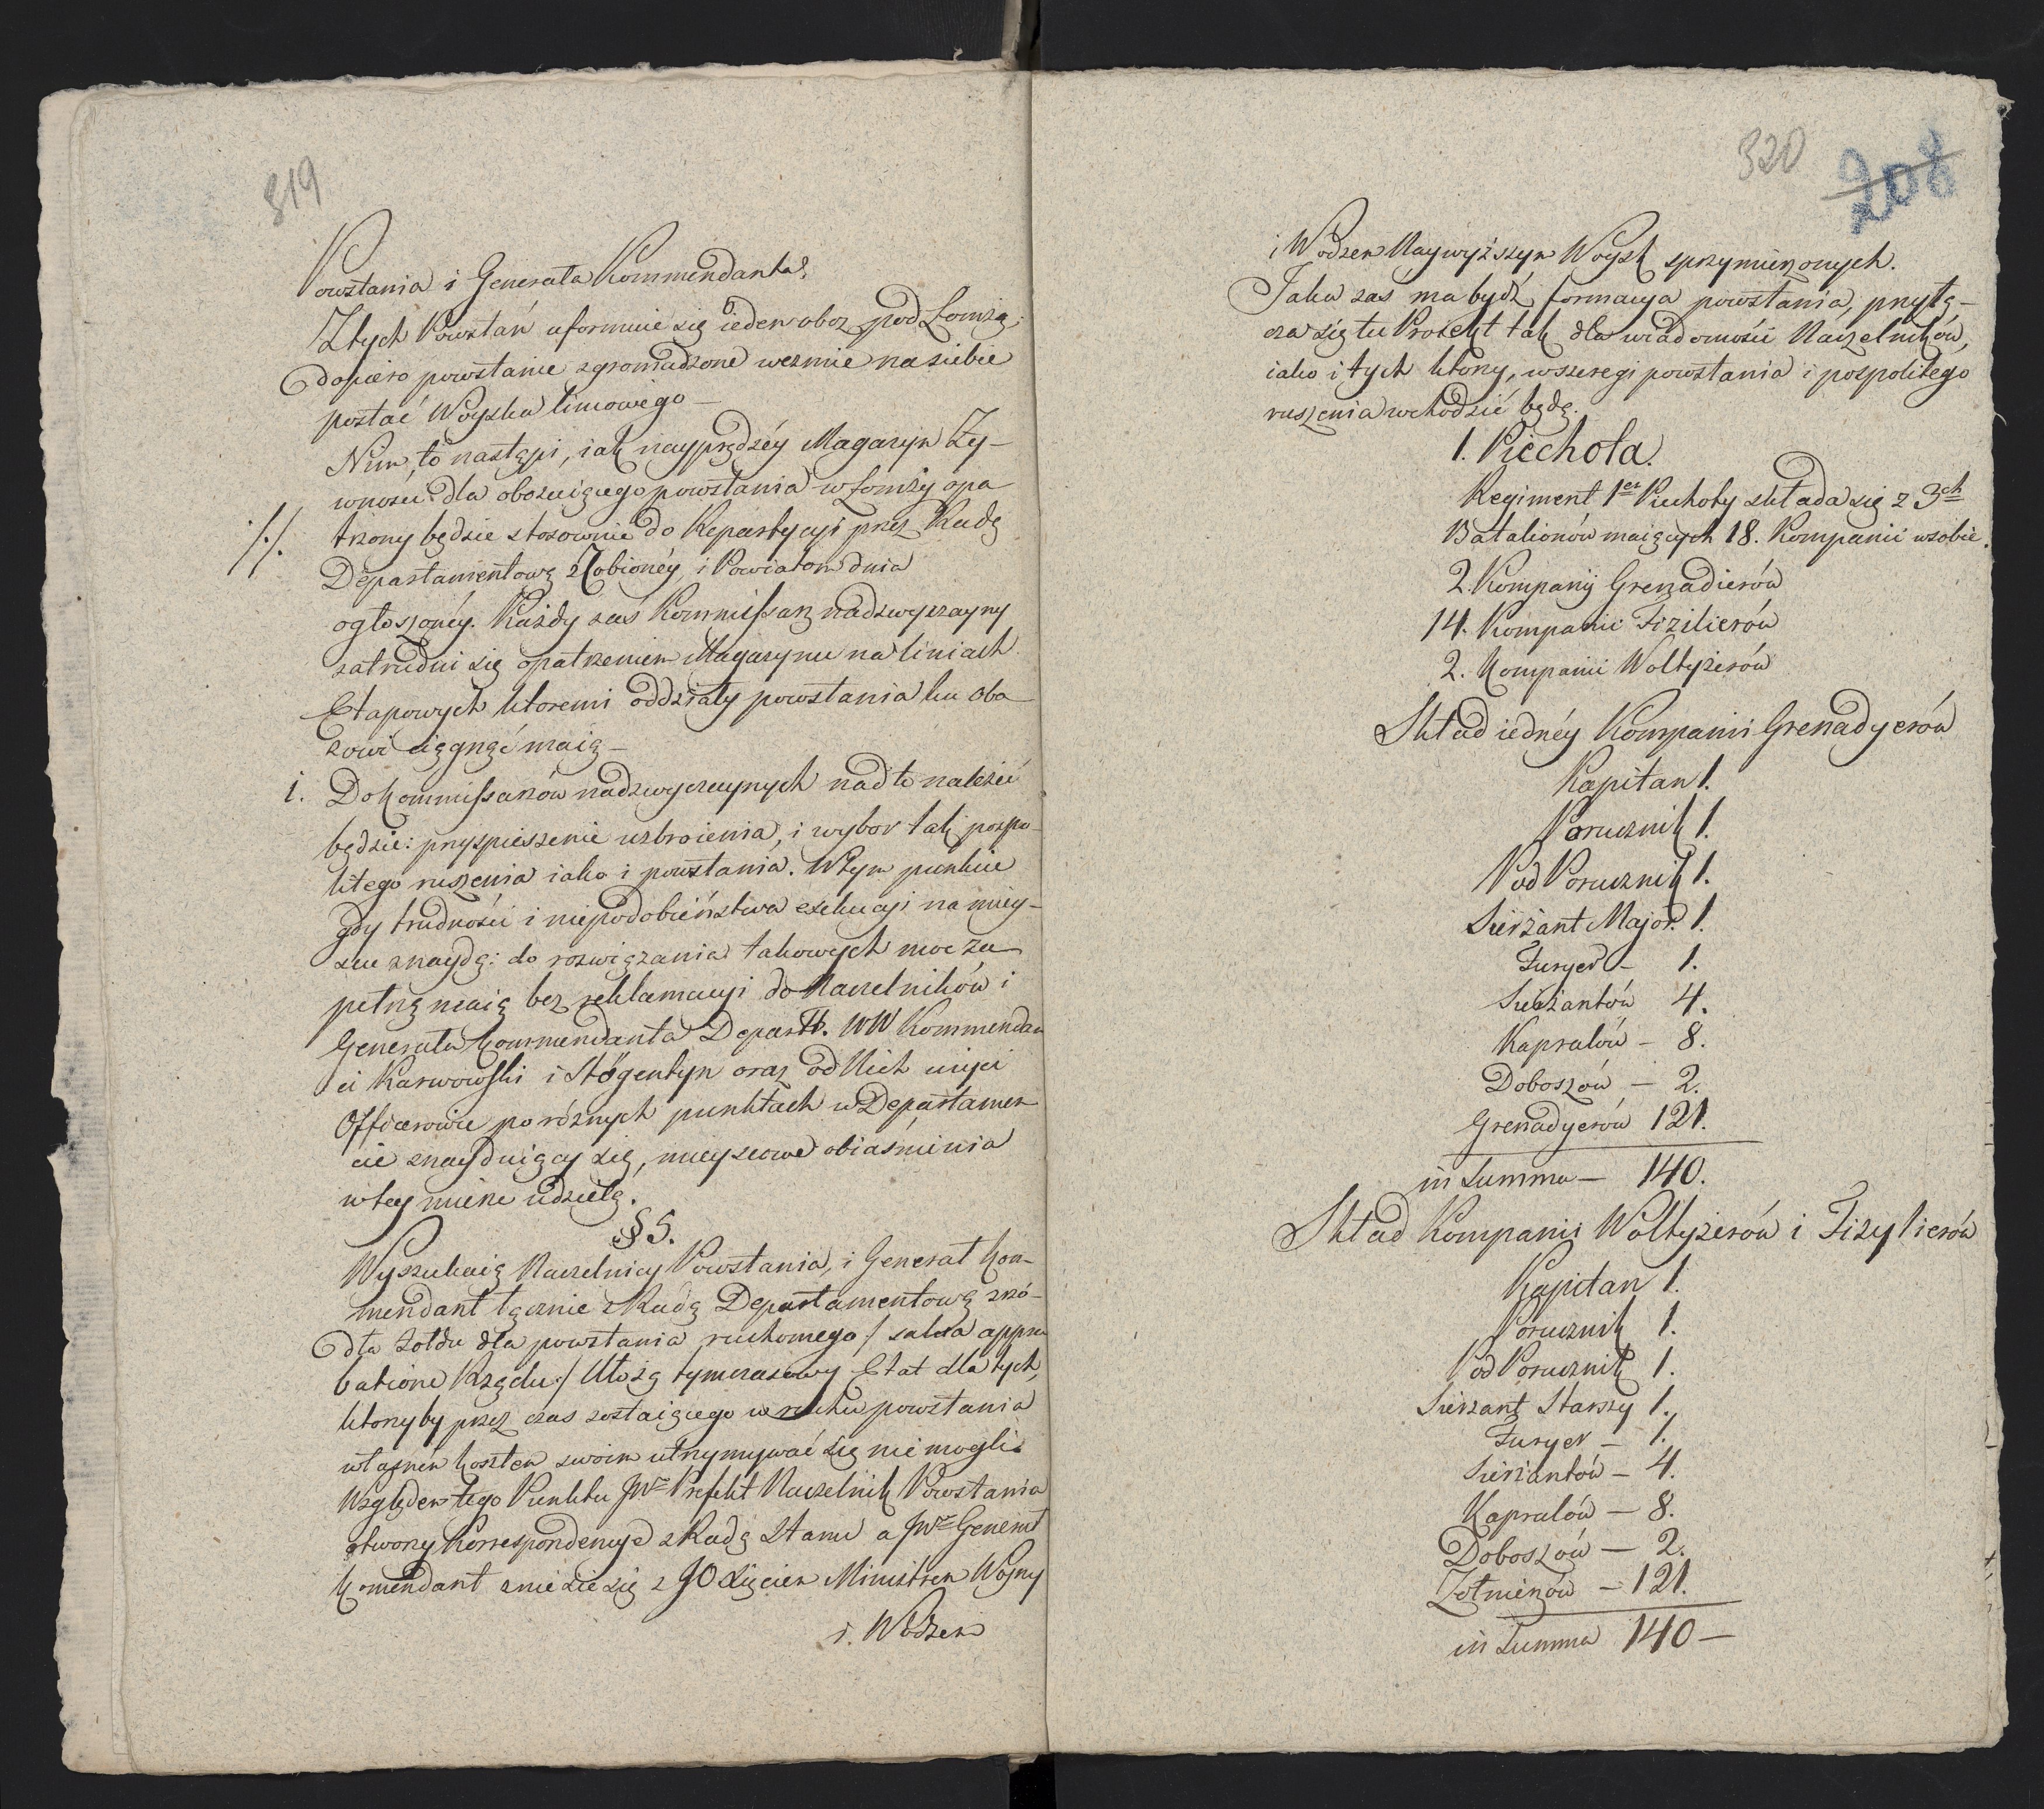 319
Powstania i Generała Kommendanta.
Z tych Powstań uformuie się ieden oboz pod Łomżą,
dopiero powstanie zgromadzone wezmie na siebie
postać Woyska liniowego —
Nim to nastąpi, iak nayprędzéy Magazyn Ży-
wności dla obozuiącego powstania w Łomży opa
·/·/. trzony będzie stosownie do Repartycyi przez Radę
Departamentową zrobionéy, i Powiatom dnia
ogłoszonéy. Każdy zas Kommissarz nadzwyczayny
zatrudni się opatrzeniem Magazynu na liniach
Etapowych ktoremi oddziały powstania ku obo
zowi ciągnąć maią —
i. Do Kommissarzów nadzwyczaynych nad to należeć
będzie: przyspieszenie uzbroienia, i wybor tak pospo-
litego ruszenia iako i powstania. W tym punkcie
gdy trudności i niepodobieństwa exekucyi na miey-
scu znaydą: do rozwiązania takowych moc zu
pełną maią bez reklamacyi do Naczelników i
Generała Kommendanta Departt. WW Kommendan
ci Karwowski i Stögentyn oraz od Nich użyci
Officerowie po różnych punktach w Departamen
cie znayduiący się, mieyscowe obiaśnienia
w tey mierze udzielą.
§ 5.
Wyszukaią Naczelnicy Powstania, i Generał Kom-
mendant łącznie z Radą Departamentową zró-
dła żołdu dla powstania ruchomego / salva appro
batione Rządu / Ułożą tymczasowy Etat dla tych,
ktorzyby przez czas zostaiącego w ruchu powstania
własnem kosztem swoim utrzymywać się nie mogli.
Względem tego Punktu JWny Prefekt Naczelnik Powstania
otworzy Korrespondencyę z Radą Stanu a JWny Generał
Komendant zniesie się z JO Xięciem Ministrem Woyny
i. Wodzem
320
208
i Wodzem Naywyższym Woysk sprzymierzonych.
Jaka zas ma bydź formacya powstania, przyłą-
cza się tu Proiekt tak dla wiadomości Naczelników,
iako i tych ktorzy, w szeregi powstania i pospolitego
ruszenia wchodzić będą.
1. Piechota.
Regiment 1en Piechoty składa się z 3ch
Batalionów maiących 18. Kompanii w sobie.
2. Kompanij Grenadierów
14. Kompanii Fizilierów
2. Kompanii Woltyżerów
Skład iednéy Kompanii Grenadyerów
Kapitan 1.
Porucznik 1.
Pod Porucznik 1.
Sierżant Major. 1.
Furyer — 1.
Sierżantów 4.
Kapralów — 8.
Doboszów — 2.
Grenadyerów 121.
in Summa — 140.
Skład Kompanii Woltyżerów i Fizylierów
Kapitan 1.
Porucznik 1.
Pod Porucznik 1.
Sierżant Starszy 1.
Furyer — 1.
Sierżantów — 4.
Kapralów — 8.
Doboszów — 2.
Żołnierzów — 121.
in Summa 140 —